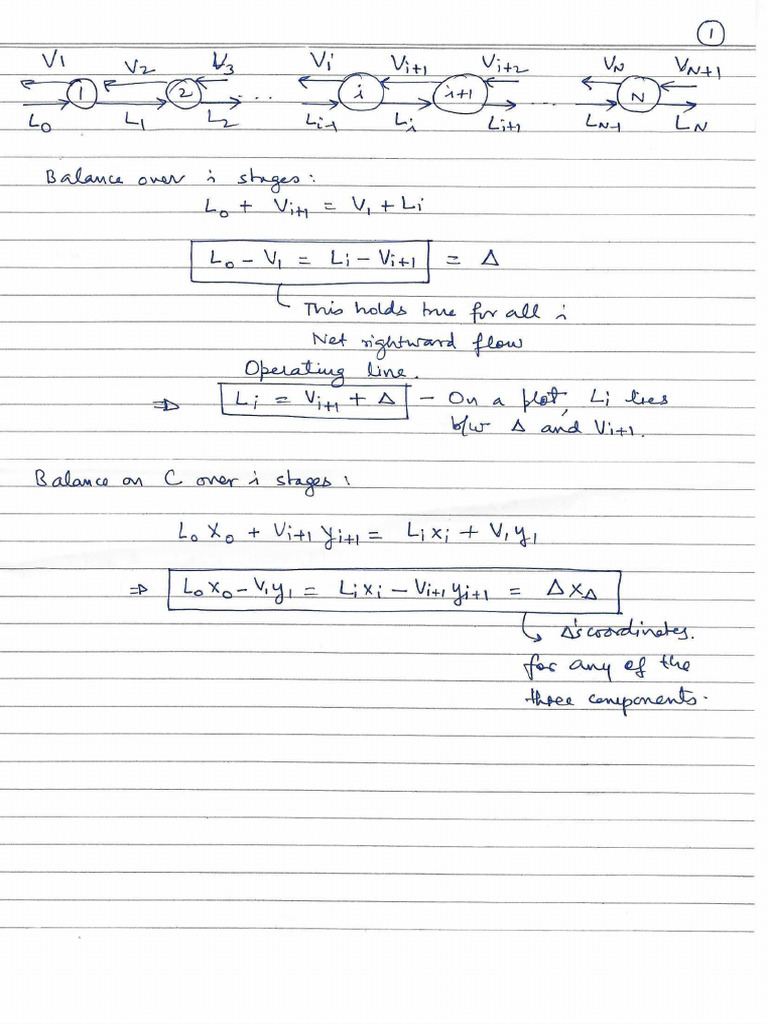 ①
V1 V2 V3 Vi Vi+1 Vi+2 VN VN+1
1 2 ... i i+1 ... N
L0 L1 L2 Li-1 Li Li+1 LN-1 LN
Balance over i stages:
L0 + Vi+1 = V1 + Li
L0 - V1 = Li - Vi+1 = Δ
This holds true for all i
Net rightward flow
Operating line.
⇒ Li = Vi+1 + Δ - On a plot, Li lies
b/w Δ and Vi+1.
Balance on C over i stages:
L0 x0 + Vi+1 yi+1 = Li xi + V1 y1
⇒ L0 x0 - V1 y1 = Li xi - Vi+1 yi+1 = Δ xΔ
Δ's coordinates.
for any of the
three components.